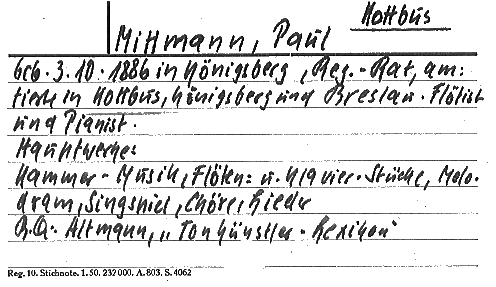 Kottbus
Mittmann, Paul
Geb. 3.10.1886 in Königsberg, Reg.-Rat, am:
tierte in Kottbus, Königsberg und Breslau. Flötist
und Pianist.
Hauptwerke:
Kammer-Musik, Flöten= u. Klavier-Stücke, Melo-
dram, Singspiel, Chöre, Lieder
Altmann, „Tonkünstler-Lexikon"
Reg. 10. Stichnote. 1. 50. 232000. A. 803. S. 4062